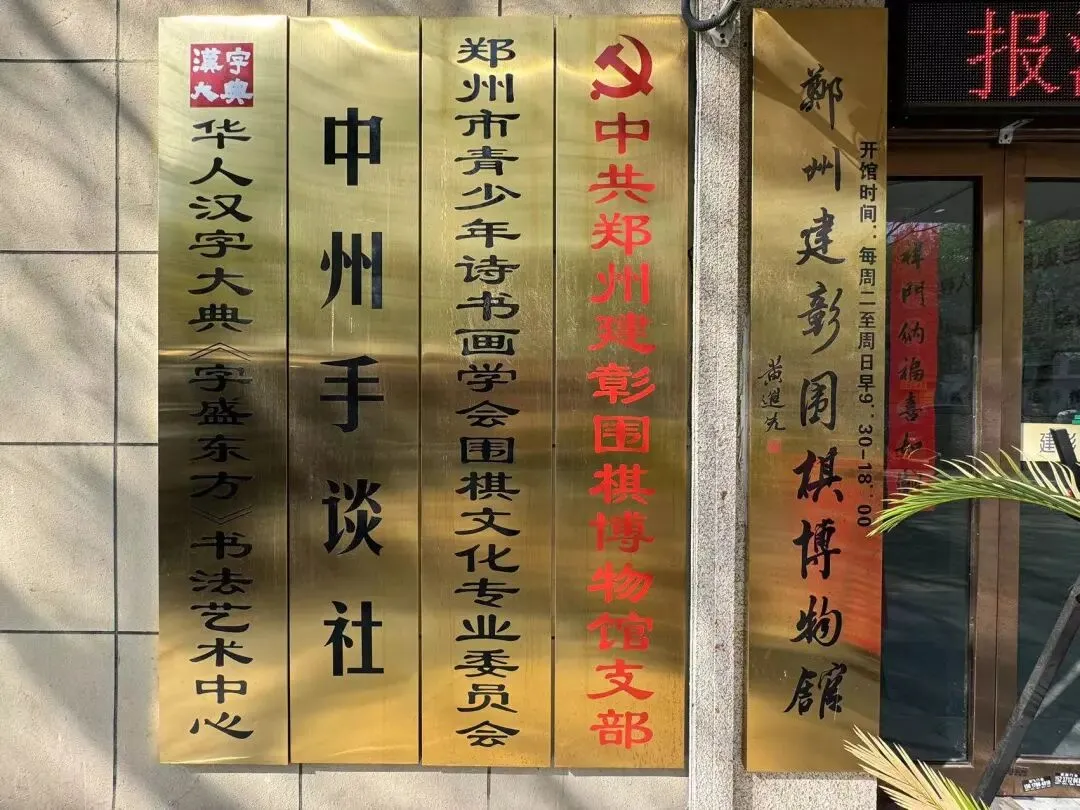 漢字
大典
华人汉字大典《字盛东方》书法艺术中心
中州手谈社
郑州市青少年诗书画学会围棋文化专业委员会
中共郑州建彰围棋博物馆支部
鄭州建彰围棋博物館
开馆时间：每周二至周日早9：30-18：00
报
祥門納福喜
建彰